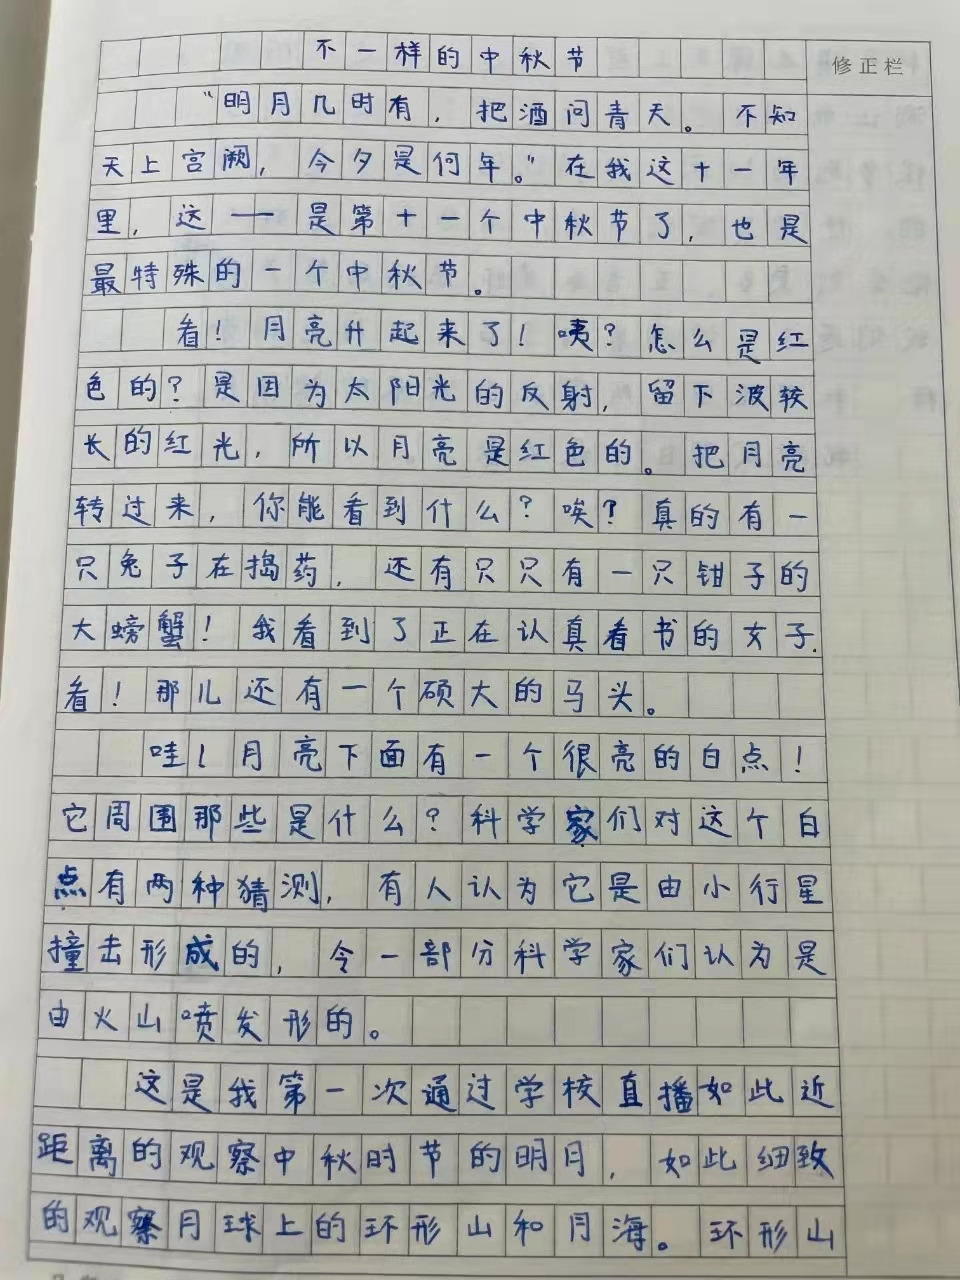 不一样的中秋节
修正栏
“明月几时有，把酒问青天。不知
天上宫阙，今夕是何年。”在我这十一年
里，这一是第十一个中秋节了，也是
最特殊的一个中秋节。
看！月亮升起来了！咦？怎么是红
色的？是因为太阳光的反射，留下波较
长的红光，所以月亮是红色的。把月亮
转过来，你能看到什么？唉？真的有一
只兔子在捣药，还有只只有一只钳子的
大螃蟹！我看到了正在认真看书的女子.
看！那儿还有一个硕大的马头。
哇！月亮下面有一个很亮的白点！
它周围那些是什么？科学家们对这个白
点有两种猜测，有人认为它是由小行星
撞击形成的，令一部分科学家们认为是
由火山喷发形的。
这是我第一次通过学校直播如此近
距离的观察中秋时节的明月，如此细致
的观察月球上的环形山和月海。环形山